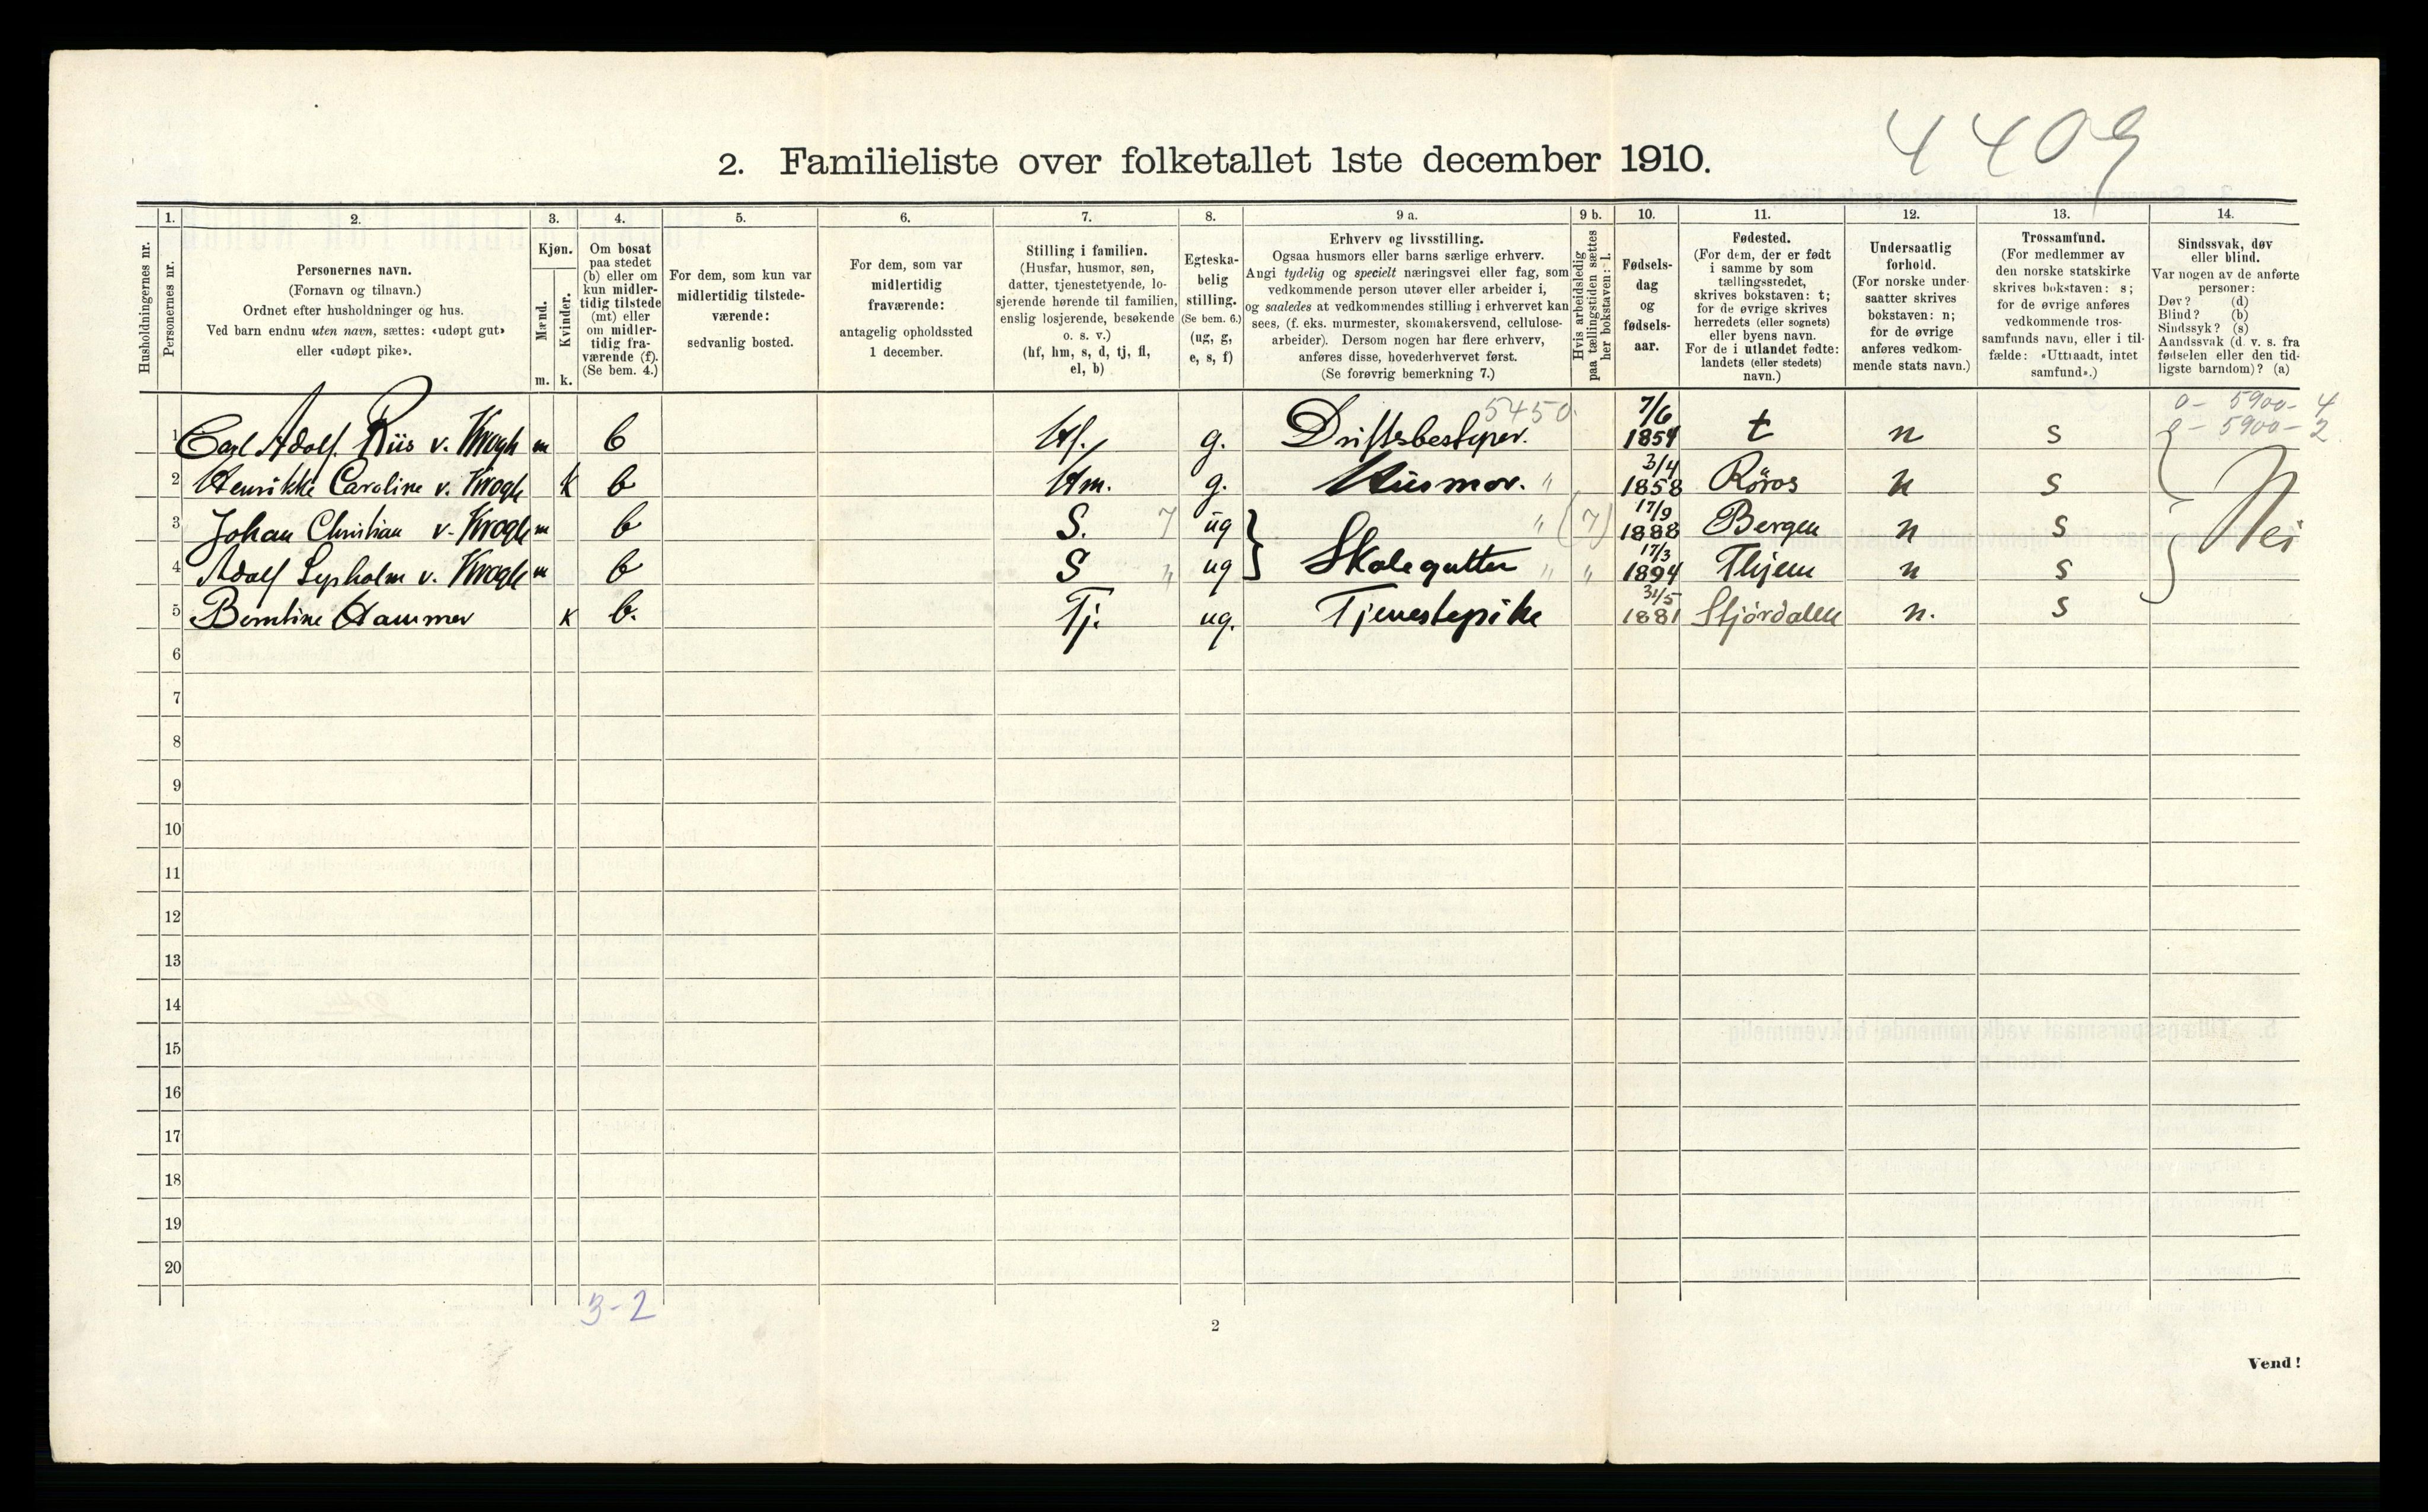 4409
2. Familieliste over folketallet 1ste december 1910.
Husholdningernes nr.
1.
Personernes nr.
2.
Personernes navn.
(Fornavn og tilnavn.)
Ordnet efter husholdninger og hus.
Ved barn endnu uten navn, sættes: «udøpt gut»
eller «udøpt pike».
3.
Kjøn.
Mænd.
Kvinder.
m. k.
4.
Om bosat
paa stedet
(b) eller om
kun midler-
tidig tilstede
(mt) eller
om midler-
tidig fra-
værende (f).
(Se bem. 4.)
5.
For dem, som kun var
midlertidig tilstede-
værende:
sedvanlig bosted.
6.
For dem, som var
midlertidig
fraværende:
antagelig opholdssted
1 december.
7.
Stilling i familien.
(Husfar, husmor, søn,
datter, tjenestetyende, lo-
sjerende hørende til familien,
enslig losjerende, besøkende
o. s. v.)
(hf, hm, s, d, tj, fl,
el, b)
8.
Egteska-
belig
stilling.
(Se bem. 6.)
(ug, g,
e, s, f)
9 a.
Erhverv og livsstilling.
Ogsaa husmors eller barns særlige erhverv.
Angi tydelig og specielt næringsvei eller fag, som
vedkommende person utøver eller arbeider i,
og saaledes at vedkommendes stilling i erhvervet kan
sees, (f. eks. murmester, skomakersvend, cellulose-
arbeider). Dersom nogen har flere erhverv,
anføres disse, hovederhvervet først.
(Se forøvrig bemerkning 7.)
9 b.
Hvis arbeidsledig
paa tællingstiden sættes
her bokstaven: l.
10.
Fødsels-
dag
og
fødsels-
aar.
11.
Fødested.
(For dem, der er født
i samme by som
tællingsstedet,
skrives bokstaven: t;
for de øvrige skrives
herredets (eller sognets)
eller byens navn.
For de i utlandet fødte:
landets (eller stedets)
navn.)
12.
Undersaatlig
forhold.
(For norske under-
saatter skrives
bokstaven: n;
for de øvrige
anføres vedkom-
mende stats navn.)
13.
Trossamfund.
(For medlemmer av
den norske statskirke
skrives bokstaven: s;
for de øvrige anføres
vedkommende tros-
samfunds navn, eller i til-
fælde: «Uttraadt, intet
samfund».)
14.
Sindssvak, døv
eller blind.
Var nogen av de anførte
personer:
Døv? (d)
Blind? (b)
Sindssyk? (s)
Aandssvak (d. v. s. fra
fødselen eller den tid-
ligste barndom)? (a)
1 Carl Adolf Riis v. Krogh m b Hf. g. Driftsbestyrer. 5450. 7/6 1854 t n s 0 - 5900 - 4
0 - 5900 - 2
2 Henrikke Caroline v. Krogh k b Hm. g. Husmor. " 3/4 1858 Røros n s
3 Johan Christian v. Krogh m b S. 7 ug " (7) 17/9 1888 Bergen n s Nei
4 Adolf v. Krogh m b S " ug Skolegutter " " 17/3 1894 n s
5 Berntine Hammer k b. Tj. ug. Tjenestepike 31/5 1881 Stjørdalen n. s
6
7
8
9
10
11
12
13
14
15
16
17
18
19
20
3-2
2
Vend!